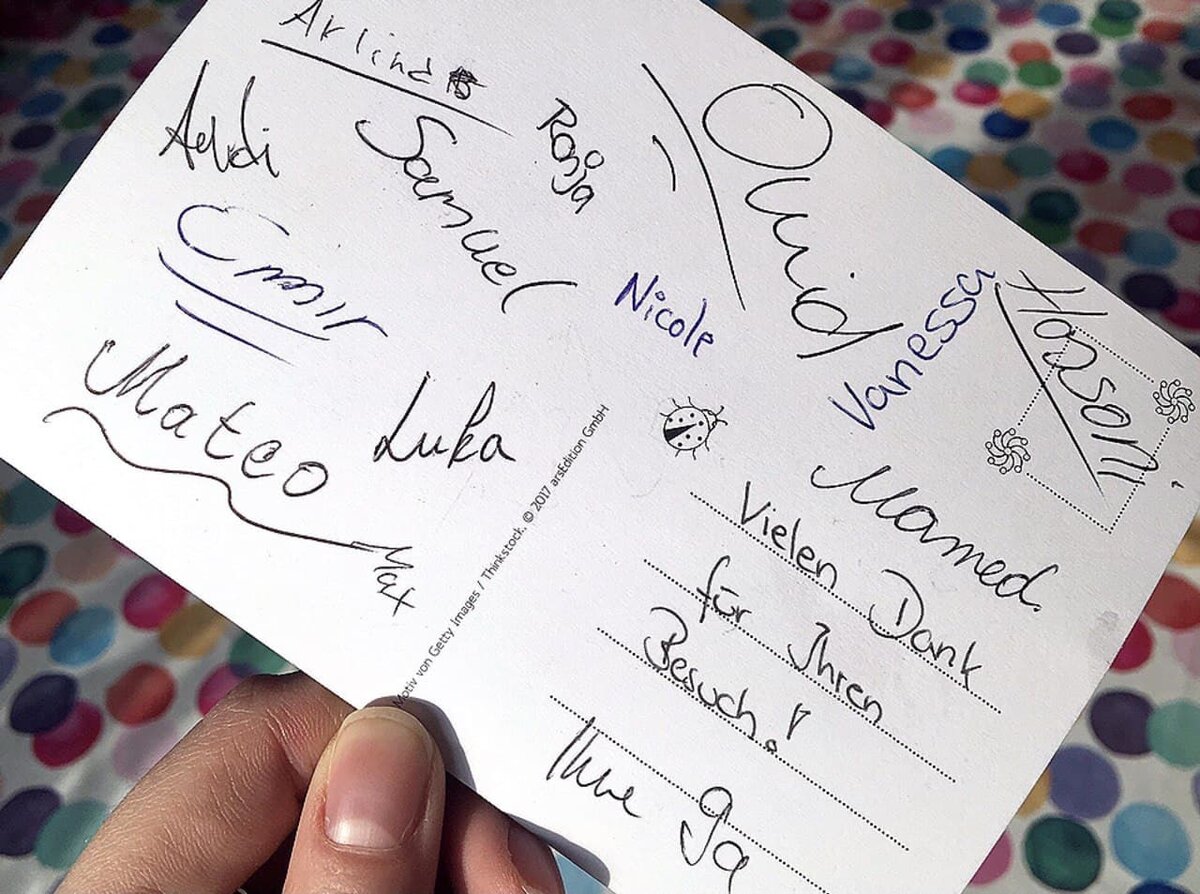 Arlind
Avdi
Samuel
Ronja
Emir
Mateo
Luka
Mat
Nicole
Vanessa
Hassan
Mamed.
Vielen Dank
für Ihren
Besuch!
Ihre 9a
Motiv von Getty Images / Thinkstock. © 2017 arsEdition GmbH